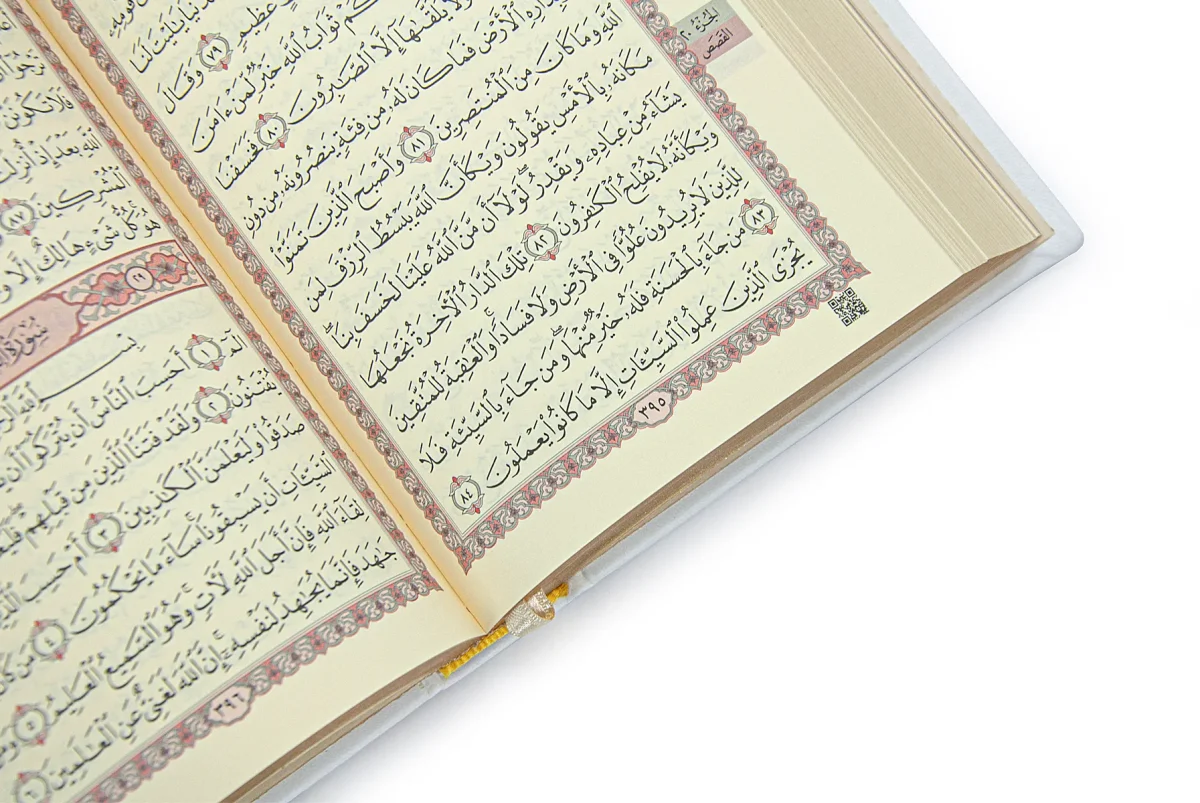 الجزء ٢٠
القصص
قَوْمِهِ
يَٰلَيْتَ لَنَا
عَظِيمٍ ٧٩ وَقَالَ
ثَوَابُ ٱللَّهِ خَيْرٌ لِّمَنْ ءَامَنَ
وَلَا يُلَقَّىٰهَآ إِلَّا ٱلصَّٰبِرُونَ ٨٠ فَخَسَفْنَا
ٱلْأَرْضَ فَمَا كَانَ لَهُۥ مِن فِئَةٍ يَنصُرُونَهُۥ مِن دُونِ
ٱللَّهِ وَمَا كَانَ مِنَ ٱلْمُنتَصِرِينَ ٨١ وَأَصْبَحَ ٱلَّذِينَ تَمَنَّوْا۟
مَكَانَهُۥ بِٱلْأَمْسِ يَقُولُونَ وَيْكَأَنَّ ٱللَّهَ يَبْسُطُ ٱلرِّزْقَ لِمَن
يَشَآءُ مِنْ عِبَادِهِۦ وَيَقْدِرُ ۖ لَوْلَآ أَن مَّنَّ ٱللَّهُ عَلَيْنَا لَخَسَفَ بِنَا ۖ
وَيْكَأَنَّهُۥ لَا يُفْلِحُ ٱلْكَٰفِرُونَ ٨٢ تِلْكَ ٱلدَّارُ ٱلْءَاخِرَةُ نَجْعَلُهَا
لِلَّذِينَ لَا يُرِيدُونَ عُلُوًّا فِى ٱلْأَرْضِ وَلَا فَسَادًا ۚ وَٱلْعَٰقِبَةُ لِلْمُتَّقِينَ
٨٣ مَن جَآءَ بِٱلْحَسَنَةِ فَلَهُۥ خَيْرٌ مِّنْهَا ۖ وَمَن جَآءَ بِٱلسَّيِّئَةِ فَلَا
يُجْزَى ٱلَّذِينَ عَمِلُوا۟ ٱلسَّيِّـَٔاتِ إِلَّا مَا كَانُوا۟ يَعْمَلُونَ ٨٤
٣٩٥
فَلَا تَكُونَنَّ
ٱللَّهِ بَعْدَ إِذْ أُنزِلَتْ
ٱلْمُشْرِكِينَ ٨٧
هُوَ ۚ كُلُّ شَىْءٍ هَالِكٌ إِلَّا
٢٩
سُورَةُ
بِسْمِ ٱللَّهِ
الٓمٓ ١ أَحَسِبَ ٱلنَّاسُ أَن يُتْرَكُوٓا۟ أَن
يُفْتَنُونَ ٢ وَلَقَدْ فَتَنَّا ٱلَّذِينَ مِن قَبْلِهِمْ ۖ
صَدَقُوا۟ وَلَيَعْلَمَنَّ ٱلْكَٰذِبِينَ ٣ أَمْ حَسِبَ
ٱلسَّيِّـَٔاتِ أَن يَسْبِقُونَا ۚ سَآءَ مَا يَحْكُمُونَ ٤ مَن كَانَ
لِقَآءَ ٱللَّهِ فَإِنَّ أَجَلَ ٱللَّهِ لَءَاتٍ ۚ وَهُوَ ٱلسَّمِيعُ ٱلْعَلِيمُ ٥
جَٰهَدَ فَإِنَّمَا يُجَٰهِدُ لِنَفْسِهِۦٓ ۚ إِنَّ ٱللَّهَ لَغَنِىٌّ عَنِ ٱلْعَٰلَمِينَ ٦
٣٩٦